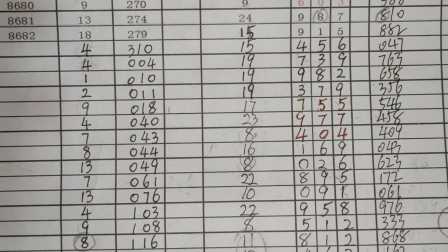 8680 9 270 9
8681 13 274 24 9 8 7 810
8682 18 279 15 9 1 5 882
4 310 15 4 5 6 047
4 004 19 7 3 9 763
1 010 19 9 8 2 658
2 011 19 3 7 9 356
9 018 17 7 5 5 546
4 040 23 9 7 7 458
7 043 8 4 0 4 409
8 044 16 1 6 9 043
13 049 8 0 2 6 623
7 061 22 8 9 5 172
13 076 10 0 9 1 061
4 103 22 9 5 8 976
9 108 8 5 1 2 333
8 116 11 8 1 868